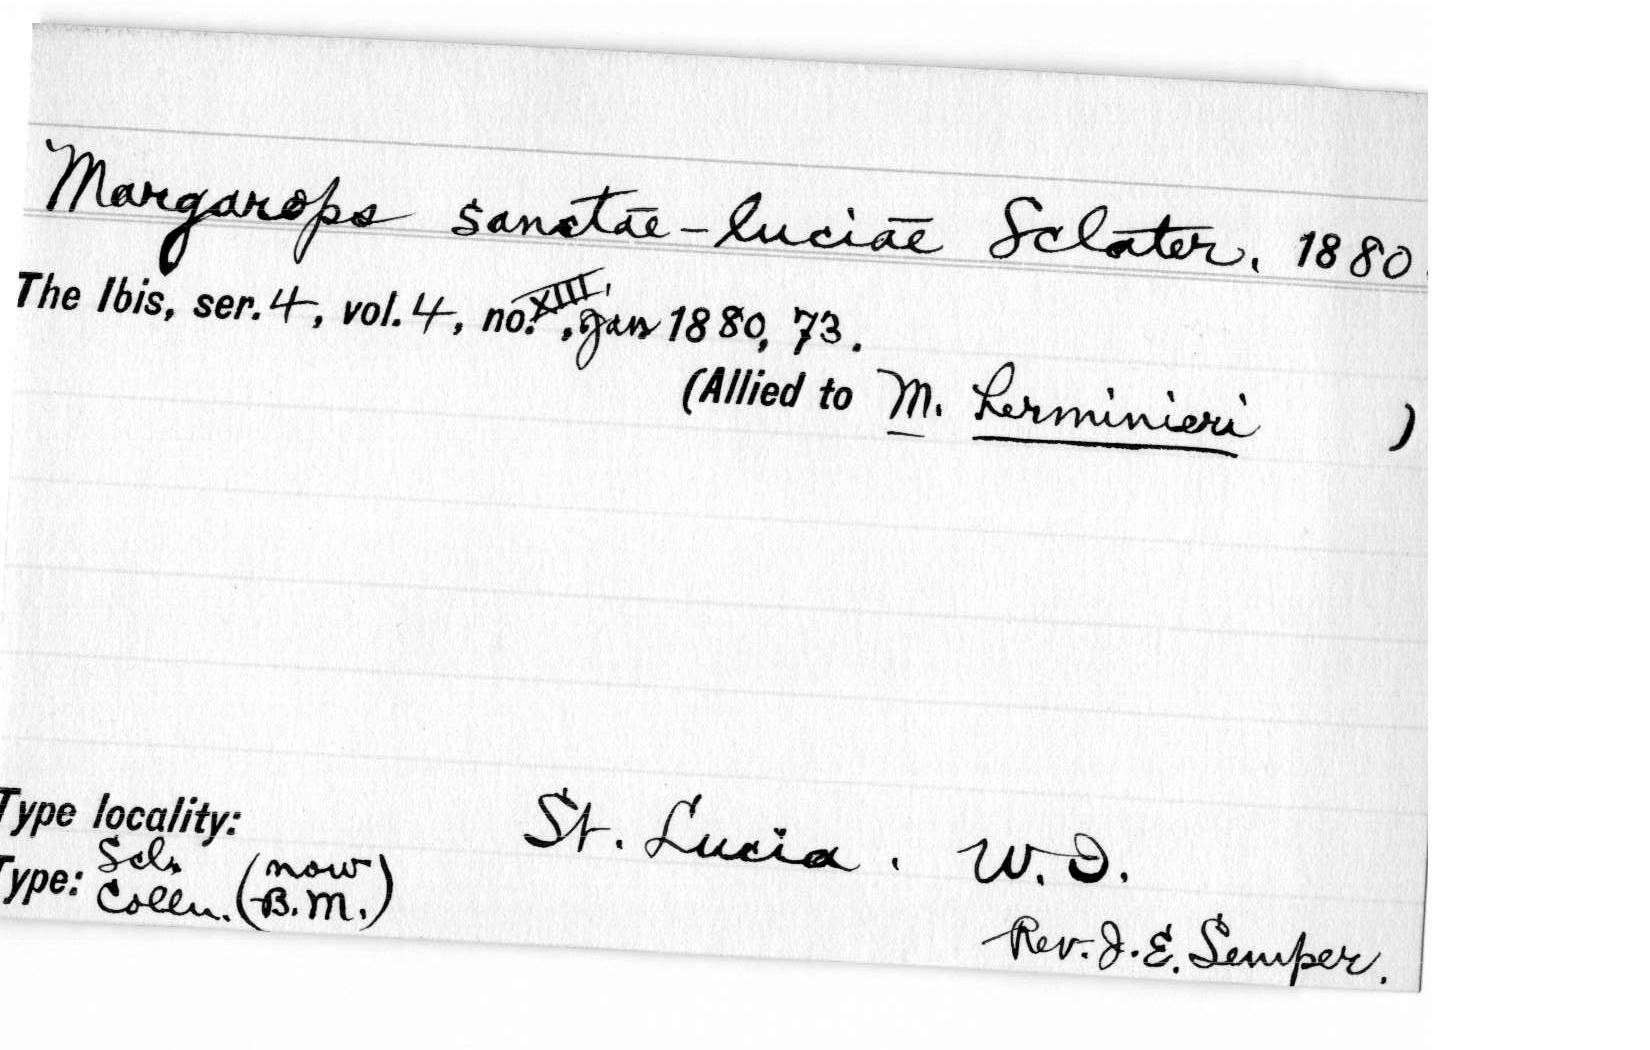 Margarops sanctae-luciae Sclater, 1880.
The Ibis, ser. 4, vol. 4, no. XIII, Jan 1880, 73.
(Allied to M. herminieri )
Type locality: St. Lucia, W.I.
Type: Scl. Colln. (now B.M.)
Rev. J. E. Semper.